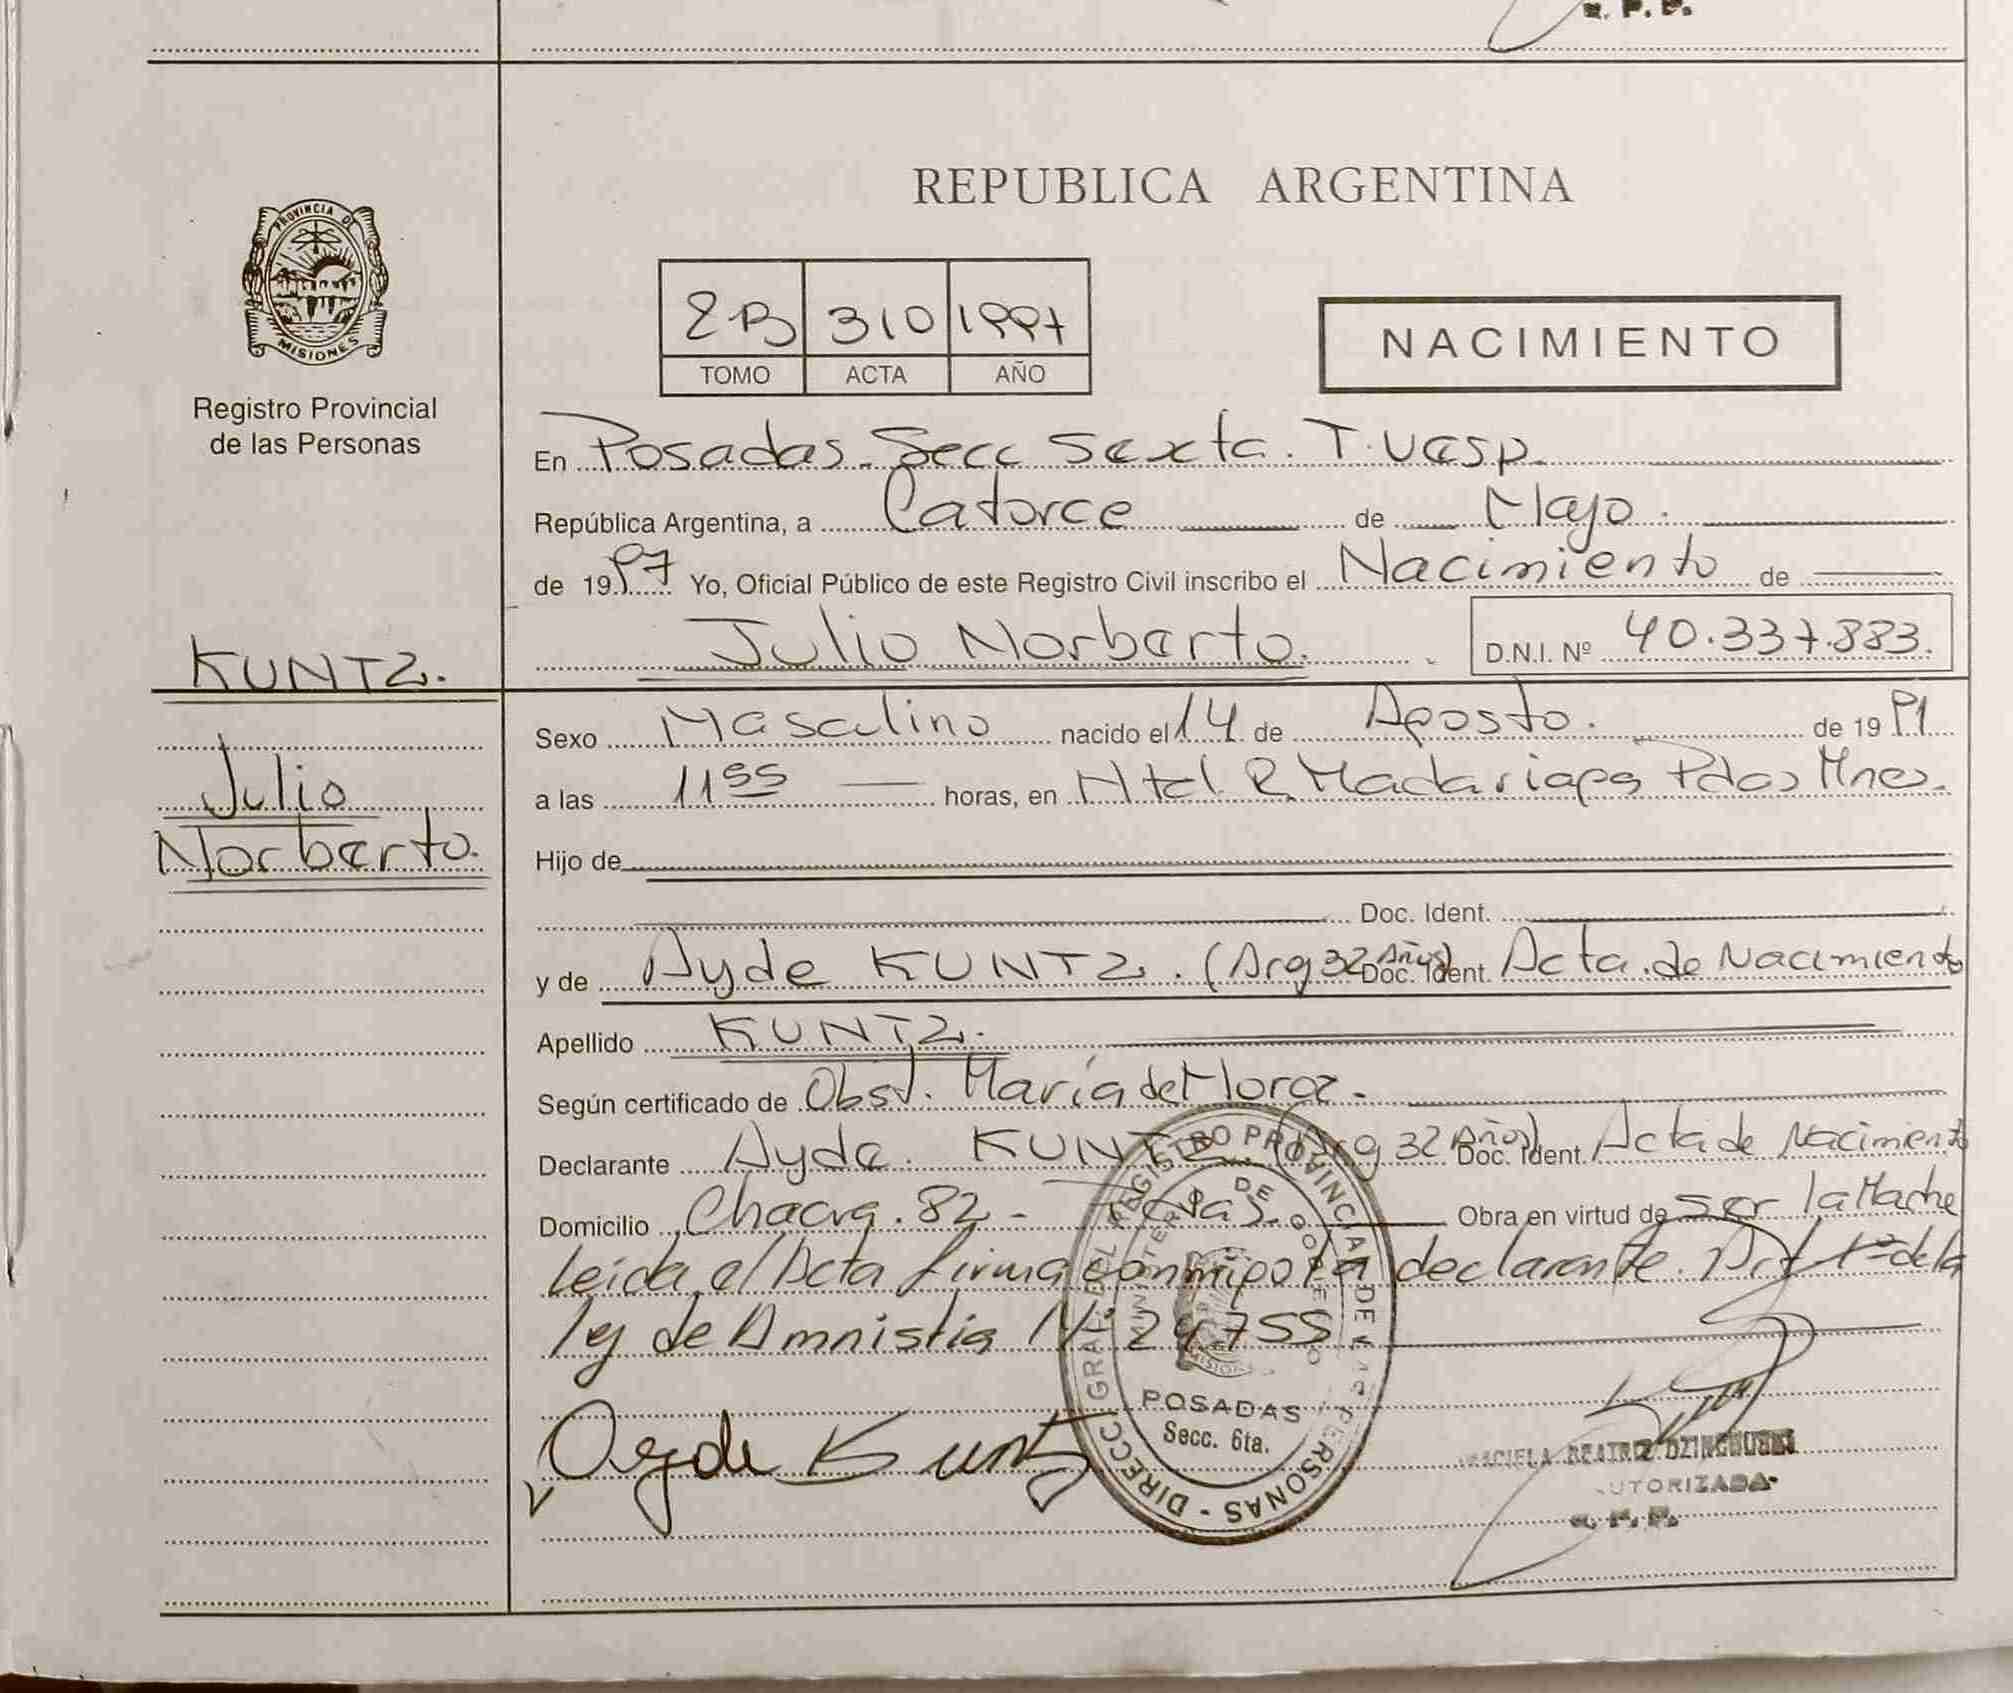 R. P. P.
PROVINCIA DE
MISIONES
Registro Provincial
de las Personas
REPUBLICA ARGENTINA
2B 310 1997
TOMO ACTA AÑO
NACIMIENTO
En Posadas. Secc Sexta. T. Vesp.
República Argentina, a Catorce de Mayo.
de 1997 Yo, Oficial Público de este Registro Civil inscribo el Nacimiento de
Julio Norberto. D.N.I. Nº 40.337.883.
KUNTZ.
Julio
Norberto.
Sexo Masculino nacido el 14 de Agosto. de 1991
a las 11 55 horas, en Htal. R. Madariaga Pdas Mnes.
Hijo de
Doc. Ident.
y de Ayde KUNTZ. (Arg 32 Años) Doc. Ident. Acta de Nacimiento
Apellido KUNTZ.
Según certificado de Obst. María de Mora.
Declarante Ayde. KUNTZ. (Arg 32 Años) Doc. Ident. Acta de Nacimiento
Domicilio Chacra. 82 - Pdas. Obra en virtud de ser la Madre
leída el Acta firma conmigo la declarante. Art 1º de la
ley de Amnistia Nº 24.755
Ayde Kuntz
DIRECC. GRAL. DEL REGISTRO PROVINCIAL DE LAS PERSONAS
MINISTERIO DE GOBIERNO
MISIONES
POSADAS
Secc. 6ta.
GRACIELA BEATRIZ
AUTORIZADA
R. P. P.